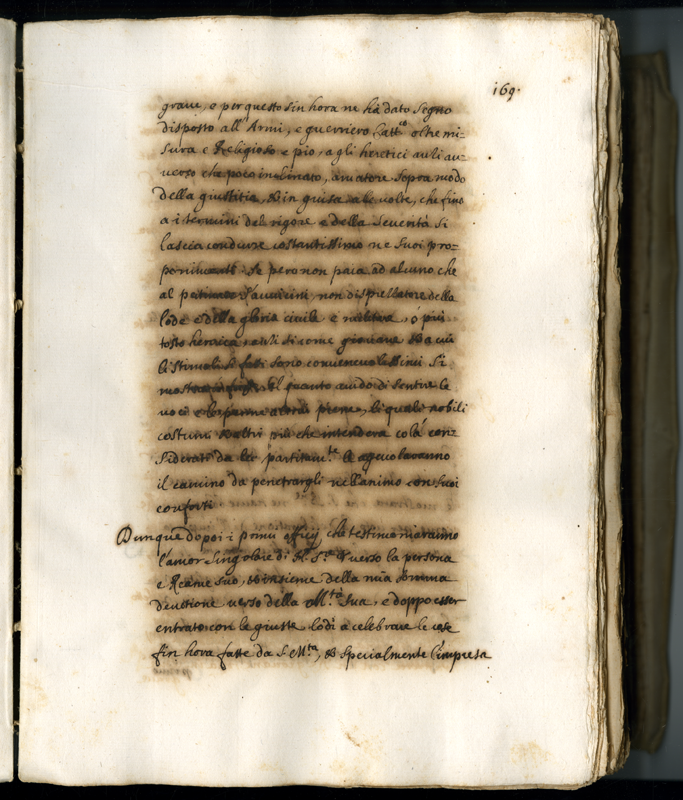 169.
grave, e per questo sin hora ne hà dato segno
disposto all'Armi, e guerriero Catt.co oltre mi=
sura e Religioso e pio, a gli heretici avli av=
verso che poco inclinato, amatore sopra modo
della giustitia, & in guisa alle volte, che fino
a i termini del rigore e della severità si
lascia condurre costantissimo ne suoi pro=
ponimenti. Se pero non paia ad alcuno che
al non disprezzatore della
lode e della gloria civile e militare, ò più
tosto heroica giovane & a cui
li stimoli sì fatti sono convenevolissimi si
quanto avido di sentire le
voci e le piene, li quali nobili
costumi & altri più che intenderà colà con=
siderati da lei partitam.te le agevolaranno
il camino da penetrargli nell'animo con suoi
conforti
Dunque dopoi i primi officij che testimoniaranno
l'amor singolare di N. S.re verso la persona
e Reame suo, & insieme della mia somma
devotione verso della M.tà Sua, e doppo esser
entrato con le giuste lodi a celebrare le cose
fin hora fatte da S. M.tà, & specialmente l'impresa